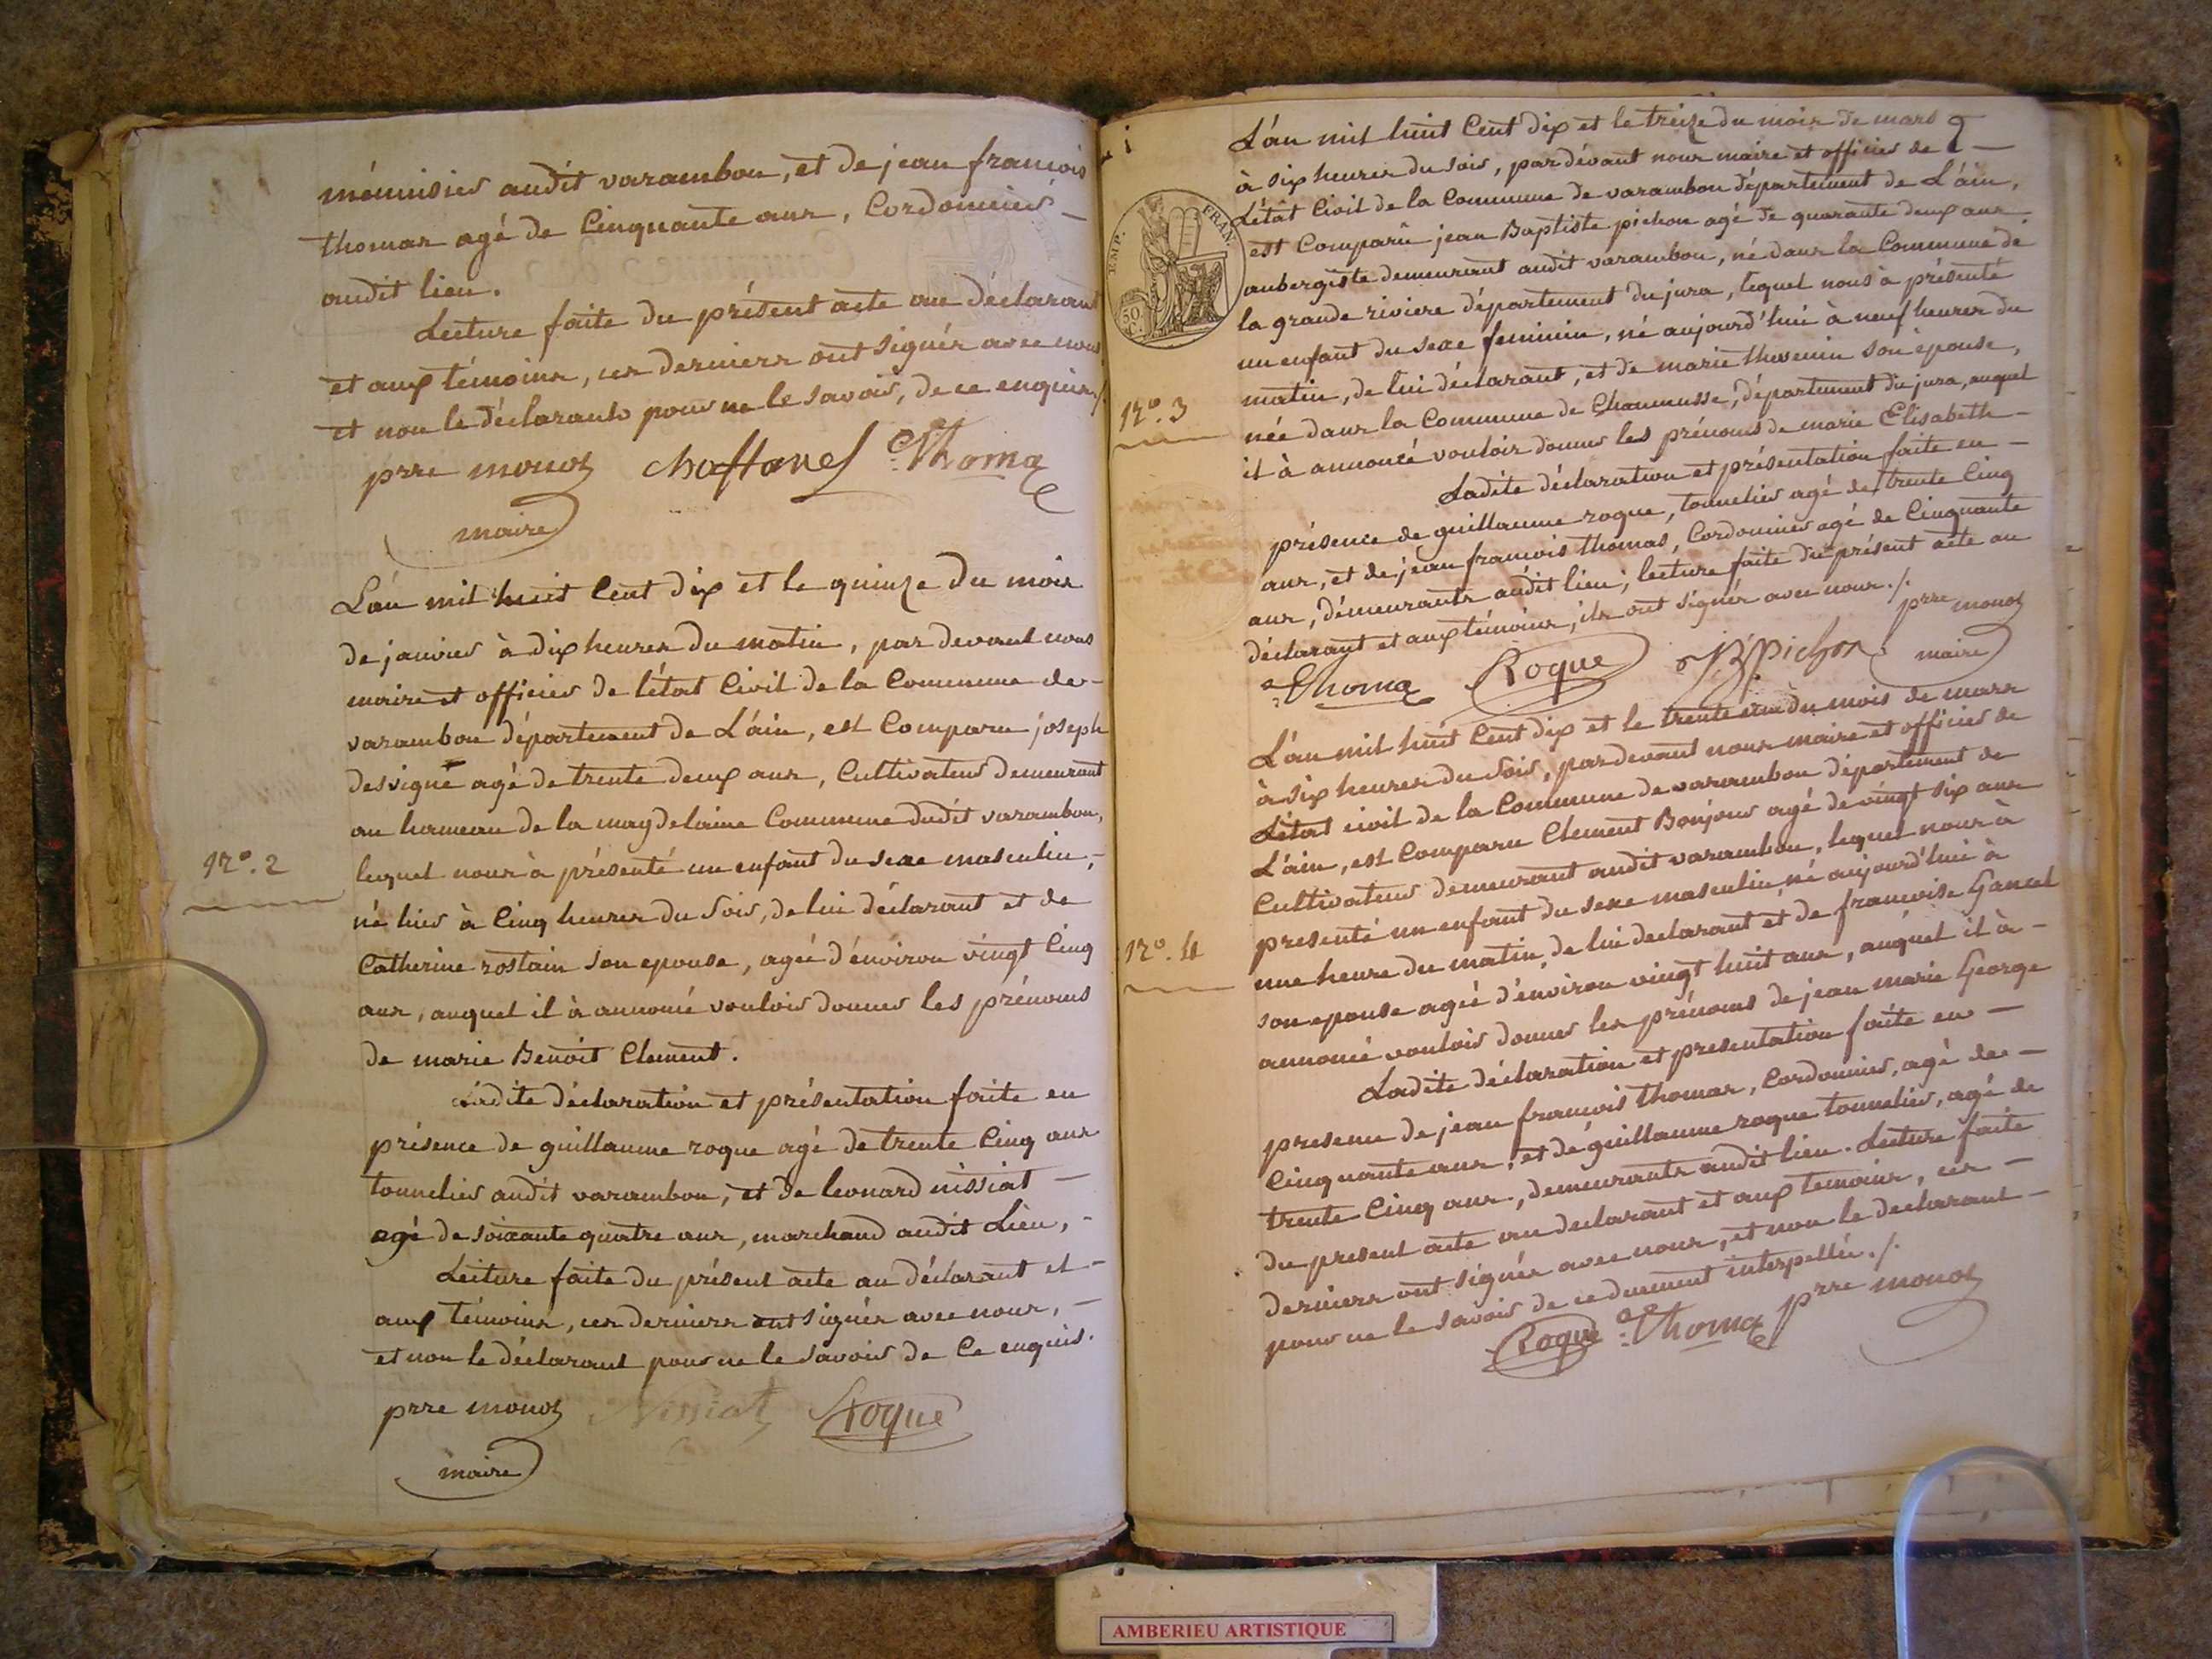 ménuisier audit varambon, et de jean francois
thomas agé de Cinquante ans, Cordonnier
audit lieu.
Lecture faite du présent acte au déclarant
et aux témoins, ces derniers ont signés avec nous
et non le déclarant pour ne le savoir, de ce enquis ./.
prre monoz chaffanel Thoma
maire
N°. 2
L'an mil huit Cent dix et le quinze du mois
de janvier à dix heures du matin, par devant nous
maire et officier de l'état Civil de la Commune de
varambon département de L'ain, est Comparu joseph
desvigne agé de trente deux ans, Cultivateur demeurant
au hameau de la magdelaine Commune dudit varambon,
lequel nous à présenté un enfant du sexe masculin,
né hier à Cinq heures du Soir, de lui déclarant et de
Catherine rostain son epouse, ageé d'énviron vingt Cinq
ans, auquel il à annoncé vouloir donner les prénoms
de marie Benoit Clement.
Ladite déclaration et présentation faite en
présence de guillaume roque agé de trente Cinq ans
tonnelier audit varambon, et de leonard nissiat
agé de soixante quatre ans, marchand audit Lieu,
Lecture faite du présent acte au déclarant et
aux témoins, ces derniers ont signés avec nous,
et non le déclarant pour ne le savoir de Ce enquis.
prre monoz Nissiat Roque
maire
EMP. FRAN.
50 C.
N°. 3
L'an mil huit Cent dix et le treize du mois de mars
à six heures du soir, par dévant nous maire et officier de
L'état Civil de la Commune de varambon département de L'ain,
est Comparû jean Baptiste pichon agé de quarante deux ans
aubergiste demeurant audit varambon, né dans la Commune de
la grande riviere département du jura, lequel nous à présenté
un enfant du sexe feminin, né aujourd'hui à neuf heures du
matin, de lui déclarant, et de marie thevenin son épouse,
née dans la Commune de Chaumusse, département du jura, auquel
il à annoncé vouloir donner les prénoms de marie Elisabeth
Ladite déclaration et présentation faite en
présence de guillaume roque, tonnelier agé de trente Cinq
ans, et de jean francois thomas, Cordonnier agé de Cinquante
ans, démeurants audit lieu; lecture faite du présent acte au
déclarant et aux témoins, ils ont signés avec nous ./.
Thoma Roque JB pichon prre monoz
maire
N°. 4
L'an mil huit Cent dix et le trente un du mois de mars
à six heures du Soir, pardevant nous maire et officier de
L'état civil de la Commune de varambon département de
L'ain, est Comparu Clement Bonjour agé de vingt six ans
Cultivateur demeurant audit varambon, lequel nous à
presenté un enfant du sexe masculin, né aujourd'hui à
une heure du matin, de lui declarant et de francoise Gancel
son epouse ageé d'énviron vingt huit ans, auquel il à
annoncé vouloir donner les prénoms de jean marie George
Ladite déclaration et presentation faite en
presence de jean francois thomas, Cordonnier, agé de
Cinquante ans, et de guillaume roque tonnelier, agé de
trente Cinq ans, demeurants audit lieu. Lecture faite
du present acte au declarant et aux temoins, ces
derniers ont signés avec nous, et non le declarant
pour ne le savoir de ce duement interpellé ./.
Roque Thoma prre monoz
AMBERIEU ARTISTIQUE